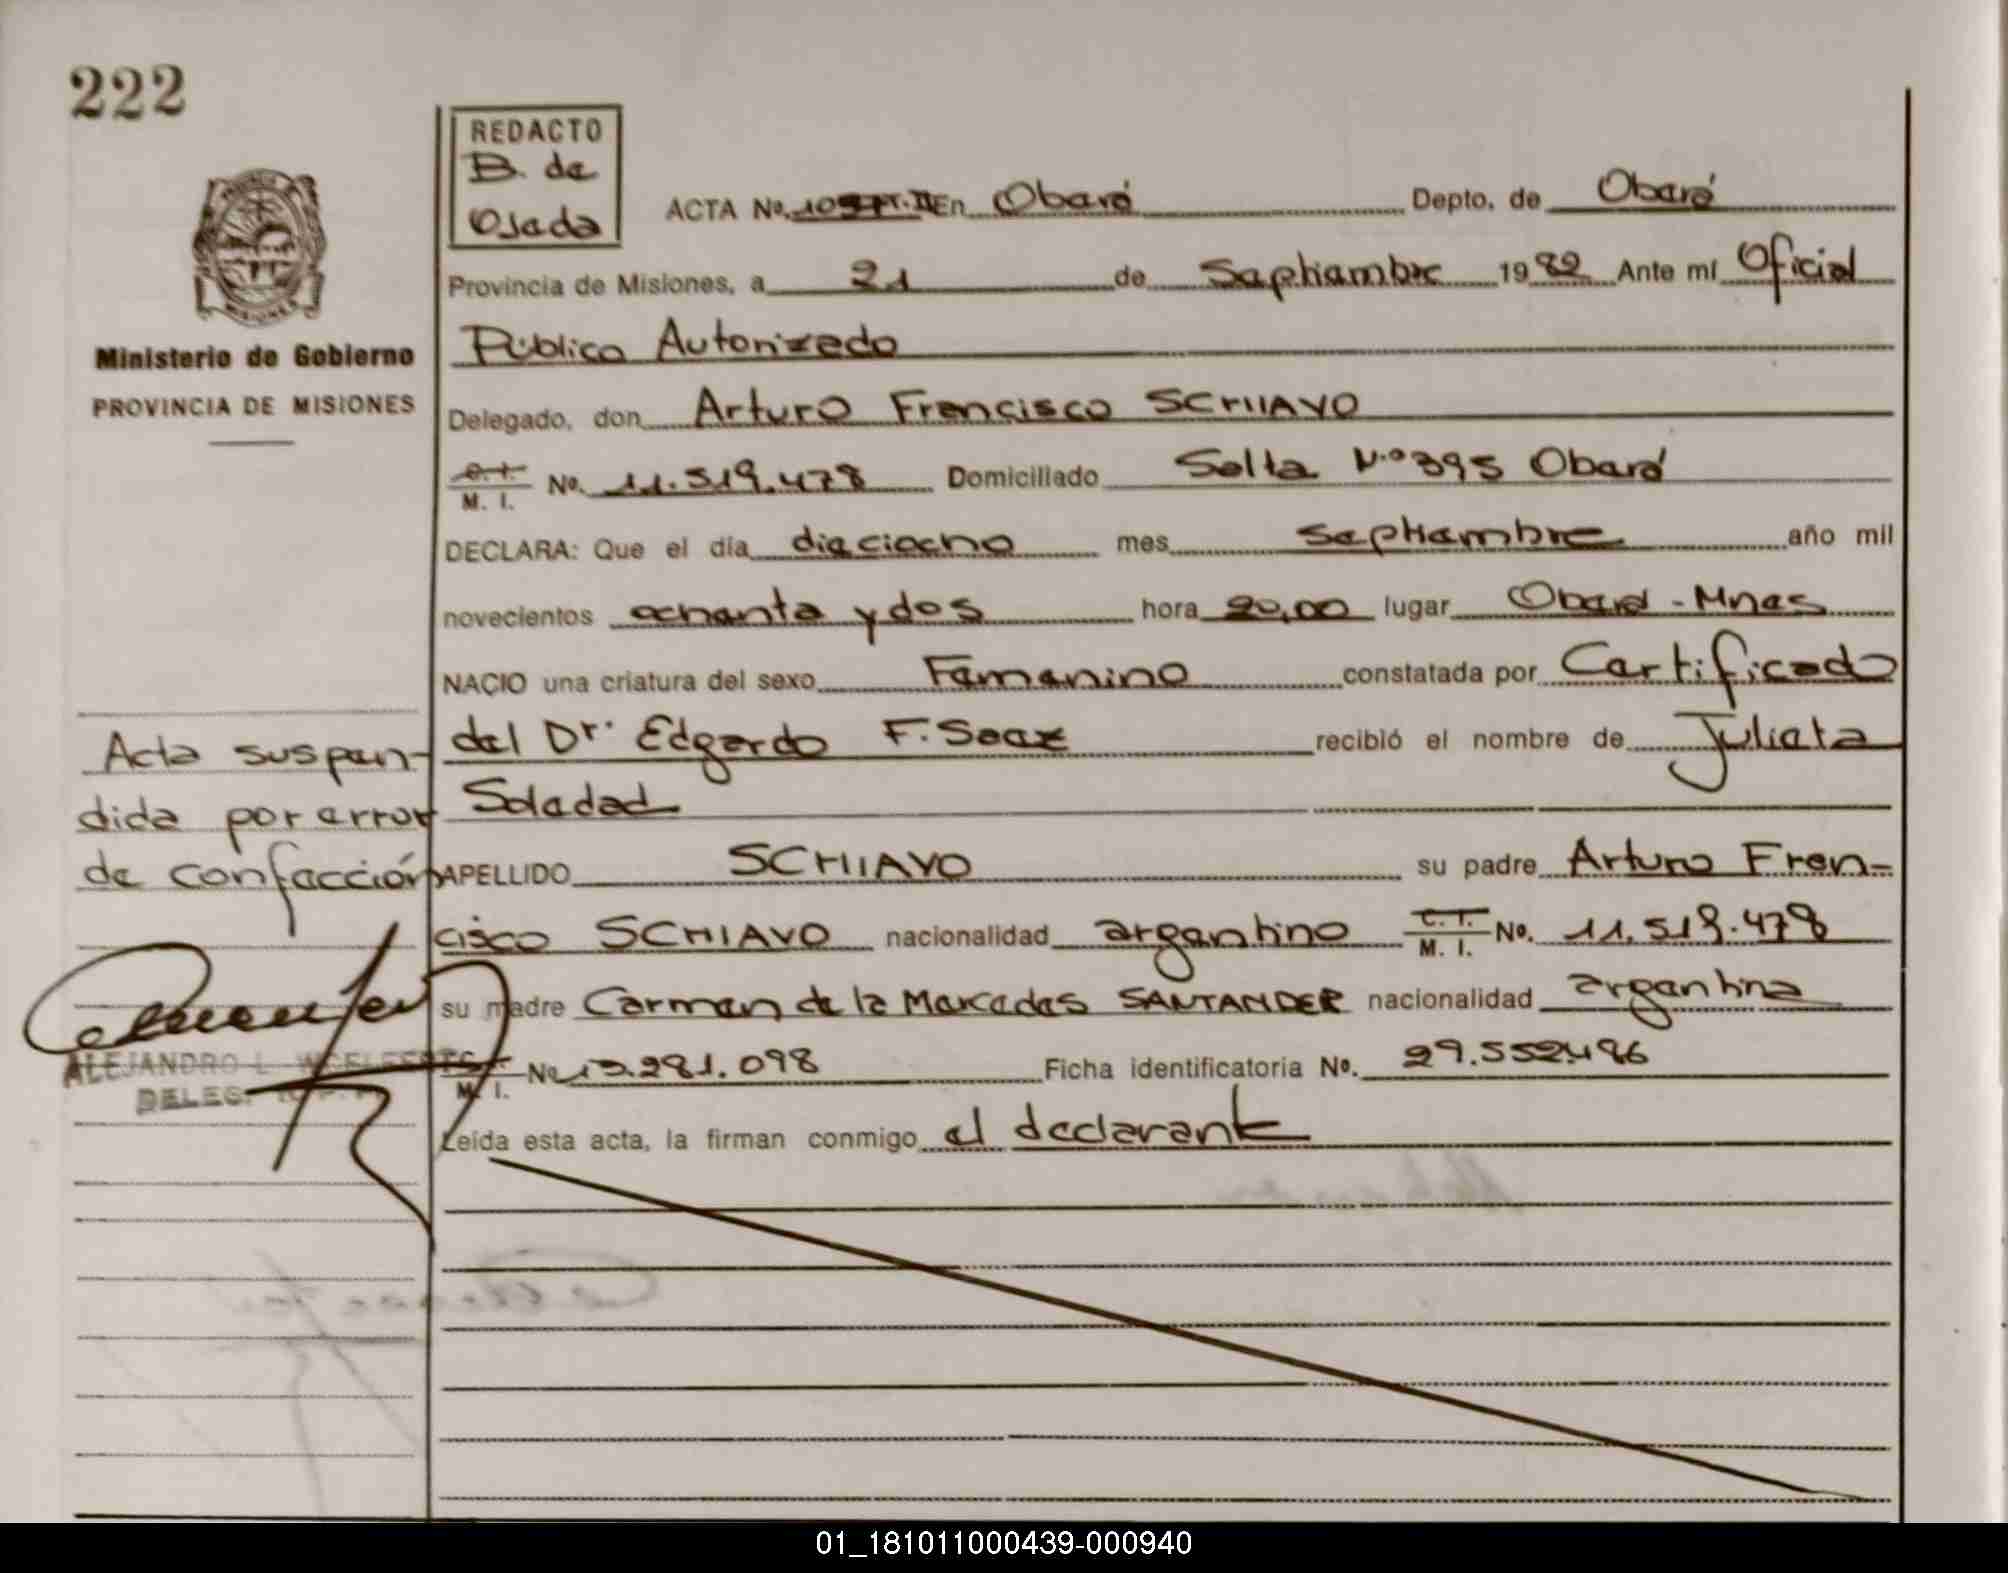 222
REDACTO
B. de
Ojeda
ACTA No. En Oberá Depto. de Oberá
Provincia de Misiones, a 21 de Septiembre 1982 Ante mí Oficial
Ministerio de Gobierno
PROVINCIA DE MISIONES
Público Autorizado
Delegado, don Arturo Francisco SCHIAVO
C.I. M. I. No. 11.519.478 Domiciliado Salta N.º 395 Oberá
DECLARA: Que el día dieciocho mes septiembre año mil
novecientos ochenta y dos hora 20,00 lugar Oberá - Mnes
NACIO una criatura del sexo Femenino constatada por Certificado
del Dr. Edgardo F. Seax recibió el nombre de Julieta
Soledad
APELLIDO SCHIAVO su padre Arturo Fran-
cisco SCHIAVO nacionalidad argentino C.I. M. I. No. 11.519.478
su madre Carmen de la Mercedes SANTANDER nacionalidad argentina
M. I. No 13.281.098 Ficha identificatoria No. 29.552.486
Leída esta acta, la firman conmigo el declarante
Acta suspen-
dida por error
de confección
ALEJANDRO L.
DELEG.
01_181011000439-000940